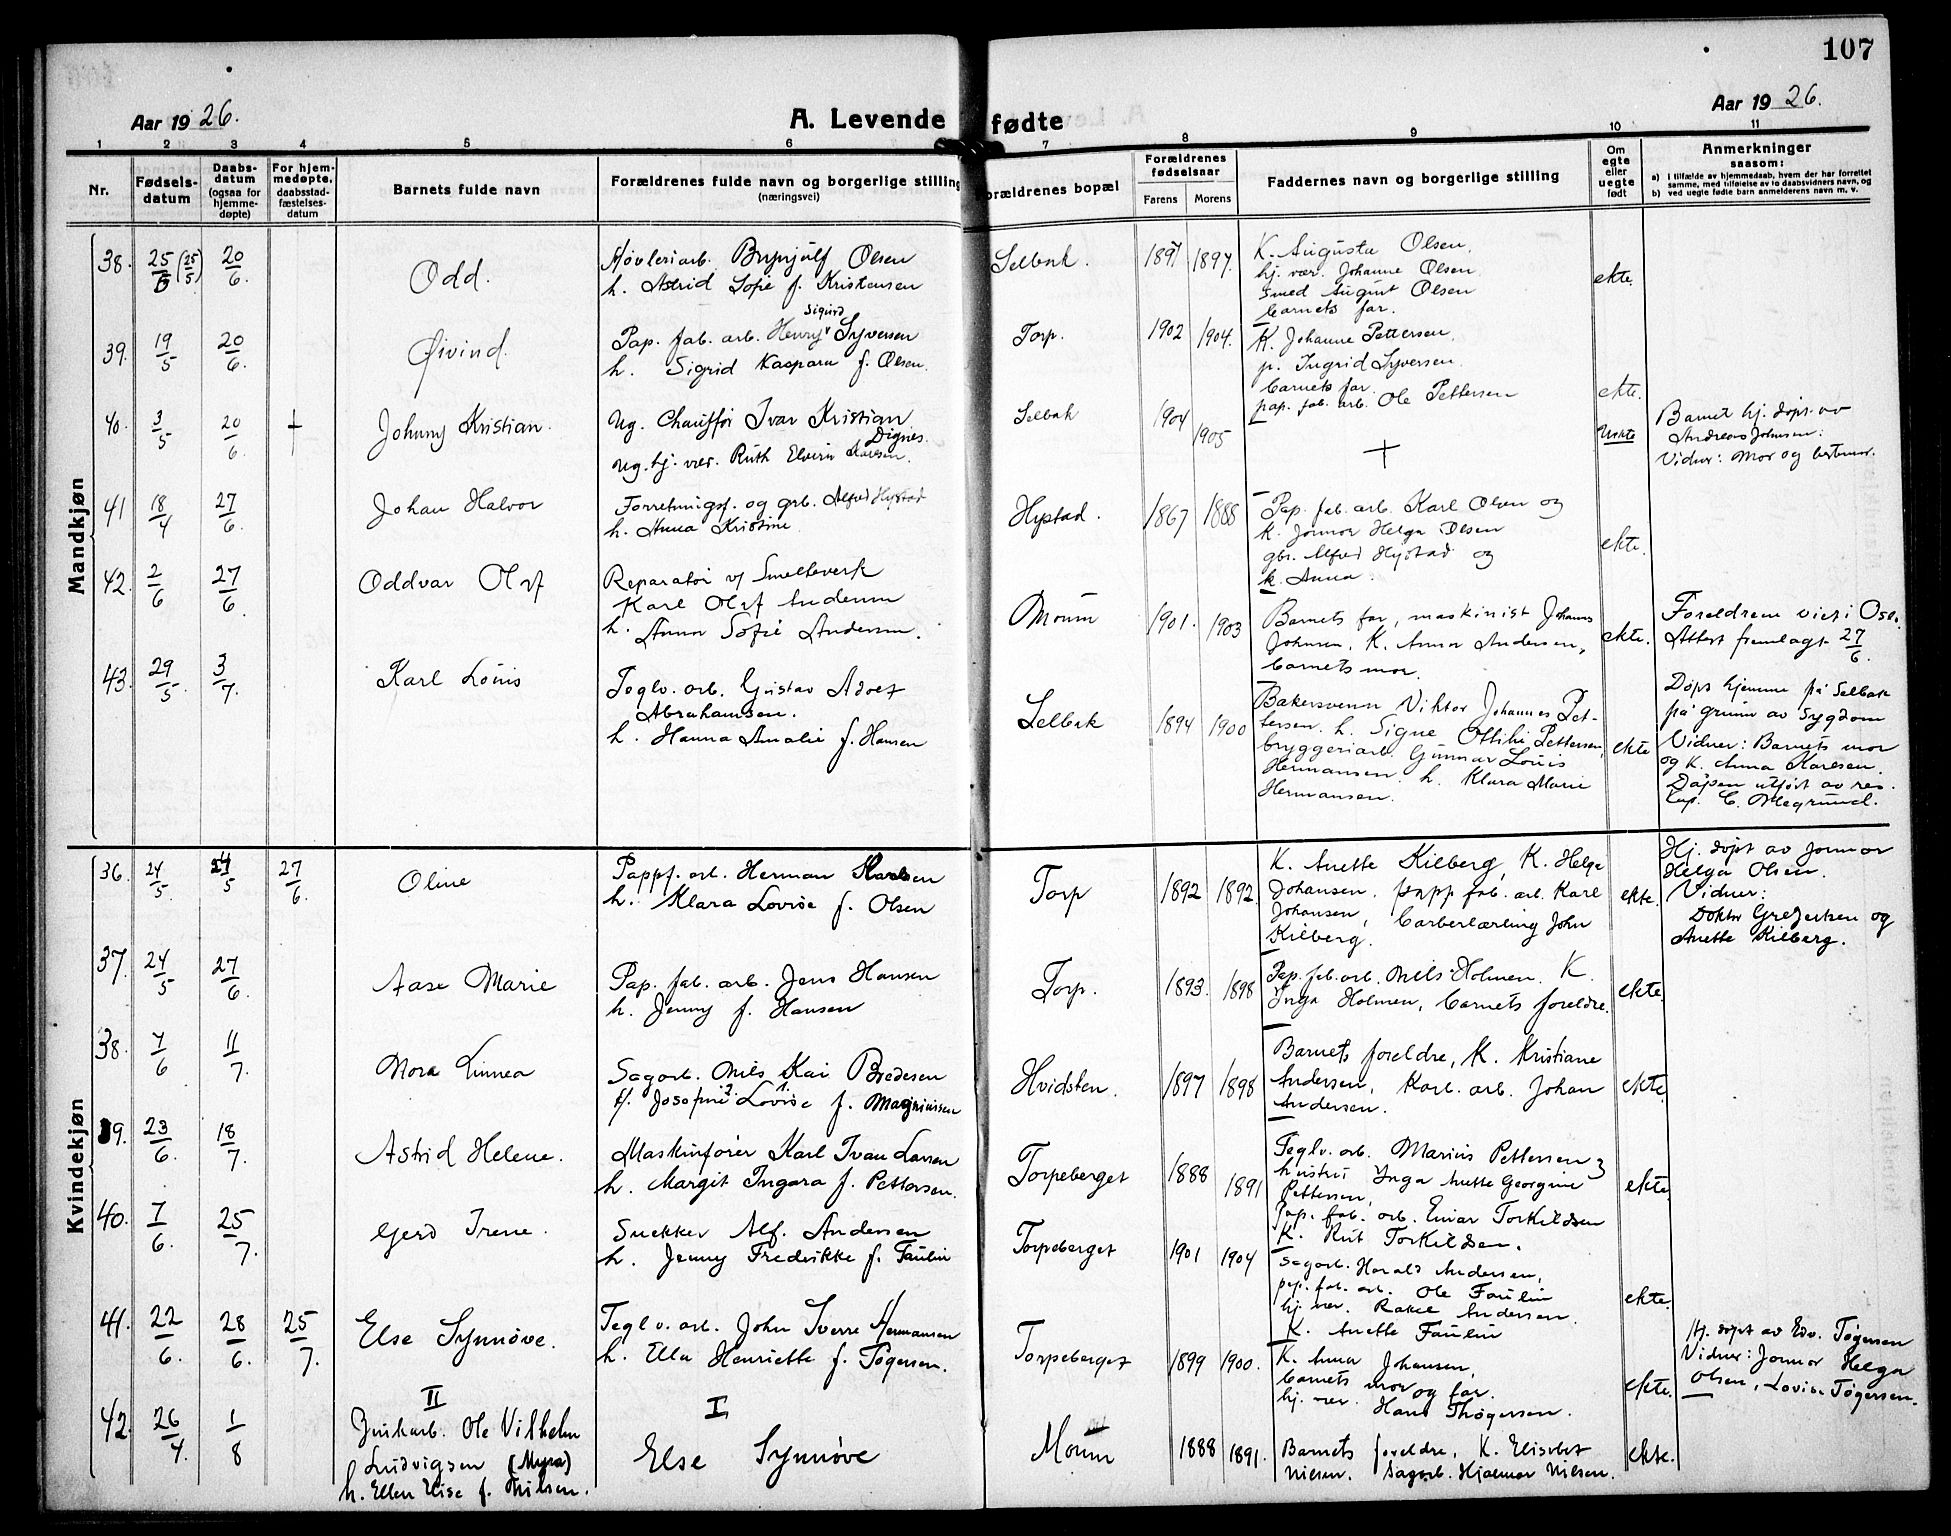 107
Aar 1926.
A. Levende fødte
Aar 1926.
1 2 3 4 5 6 7 8 9 10 11
Nr.
Fødselsdatum
Daabsdatum (ogsaa for hjemmedøpte)
For hjemmedøpte, daabsstadfæstelsesdatum
Barnets fulde navn
Forældrenes fulde navn og borgerlige stilling
(næringsvei)
Forældrenes bopæl
Forældrenes fødselsaar
Farens Morens
Faddernes navn og borgerlige stilling
Om egte eller uegte født
Anmerkninger
saasom:
a) I tilfælde av hjemmedaab, hvem der har forrettet samme, med tilføielse av to daabsvidners navn, og
b) ved uegte fødte barn anmelderens navn m. v.
Mandkjøn
38. 25/5 (25/5) 20/6. Odd.
Høvleriarb. Brynjulf Olsen
h. Astrid Sofie f. Kristensen
Selbak. 1897 1897.
K. Augusta Olsen,
hj. vær. Johanne Olsen
smed August Olsen
barnets far.
ekte.
39. 19/5 20/6. Øivind.
Sigurd
Pap. fab. arb. Henry Syversen
h. Sigrid Kaspara f. Olsen.
Torp. 1902 1904.
K. Johanne Pettersen,
p. Ingrid Syversen
barnets far.
pap. fab. arb. Ole Pettersen
ekte.
40. 3/5 20/6 + Johnny Kristian.
Ug. Chauffør Ivar Kristian
Dignes.
Ug. hj. vær. Ruth Elvira Karlsen.
Selbak 1904 1905
+
Uekte
Barnet hj. døpt av
Andreas Johnsen:
Vidner: Mor og bestemor.
41 18/4 27/6. Johan Halvor
Forretningsf. og grb. Alfred Hystad
h. Anna Kristine
Hystad. 1867 1888
Pap. fab. arb. Karl Olsen og
k. Jormor Helga Olsen
gbr. Alfred Hystad og
k. Anna.
ekte.
42. 2/6 27/6. Oddvar Olaf
Reparatør v/ Smelteverk
Karl Olaf Andersen
h. Anna Sofie Andersen.
Moum 1901. 1903
Barnets far, maskinist Johannes
Johnsen, K. Anna Andersen,
barnets mor.
ekte.
Foreldrene viet i Oslo.
Attest fremlagt 27/6.
43. 29/5. 3/7. Karl Louis
Teglv. arb. Gustav Adolf
Abrahamsen.
h. Hanna Amalie f. Hansen
Selbak 1894 1900
Bakersvenn Viktor Johannes Pet-
tersen. h. Signe Ottilie Pettersen,
bryggeriarb. Gunnar Louis
Hermansen. h. Klara Marie
Hermansen.
ekte
Døpt hjemme på Selbak
på grunn av sygdom
Vidner: Barnets mor
og K. Anna Karlsen.
Dåpen utført av res.
kap. C. Megrund.
Kvindekjøn
36. 24/5 24/5 27/6. Oline
Pappf. arb. Herman Karlsen
h. Klara Lovise f. Olsen
Torp 1892 1892
K. Anette Kilberg, K. Helga
Johansen, papp fab. arb. Karl
Johansen, barberlærling John
Kilberg.
ekte.
Hj. døpt av jormor
Helga Olsen.
Vidner:
Doktor Gredertsen og
Anette Kilberg.
37. 24/5 27/6. Aase Marie
Pap. fab. arb. Jens Hansen
h. Jenny f. Hansen
Torp. 1893. 1898
Pap. fab. arb. Nils Holmen. K.
Inga Holmen, barnets foreldre.
ekte.
38. 7/6 11/7. Nora Linnea
Sagarb. Nils Kai Bredesen
h. Josefine Lovise f. Magnussen
Hvidsten. 1897 1898
Barnets foreldre, K. Kristiane
Andersen, Karb. arb. Johan
Andersen.
ekte.
39. 23/6. 18/7. Astrid Helene.
Maskinfører Karl Ivan Larsen
h. Margit Ingara f. Pettersen.
Torpeberget 1888 1891
Teglv. arb. Marius Pettersen og
hustru Inga Anette Georgine
Pettersen,
Pap. fab. arb. Einar Torkildsen
K. Rut Torkildsen.
ekte.
40. 7/6. 25/7. Gerd Irene.
Snekker Alf. Andersen
h. Jenny Fredrikke f. Faulin
Torpeberget 1901 1904
Sagarb. Harald Andersen,
pap. fab. arb. Ole Faulin
hj. vær. Rakel Andersen.
K. Anette Faulin
ekte.
41. 22/6. 28/6. 25/7. Else Synnøve.
Teglv. arb. John Sverre Hermansen
h. Ella Henriette f. Tøgersen.
Torpeberget 1899 1900.
K. Anna Johansen,
barnets mor og far.
hj. vær. Hans Thøgersen.
ekte.
Hj. døpt av Edv. Tøgersen
Vidner: Jormor Helga
Olsen, Lovise Tøgersen.
42. 26/4. 1/8
II
Jernarb. Ole Vilhelm
Ludvigsen (Myra)
h. Ellen Elise f. Nilsen.
I
Else Synnøve
Moum 1888 1891.
Barnets foreldre, K. Elisabet
Nielsen. Sagarb. Hjalmar Nilsen.
ekte.